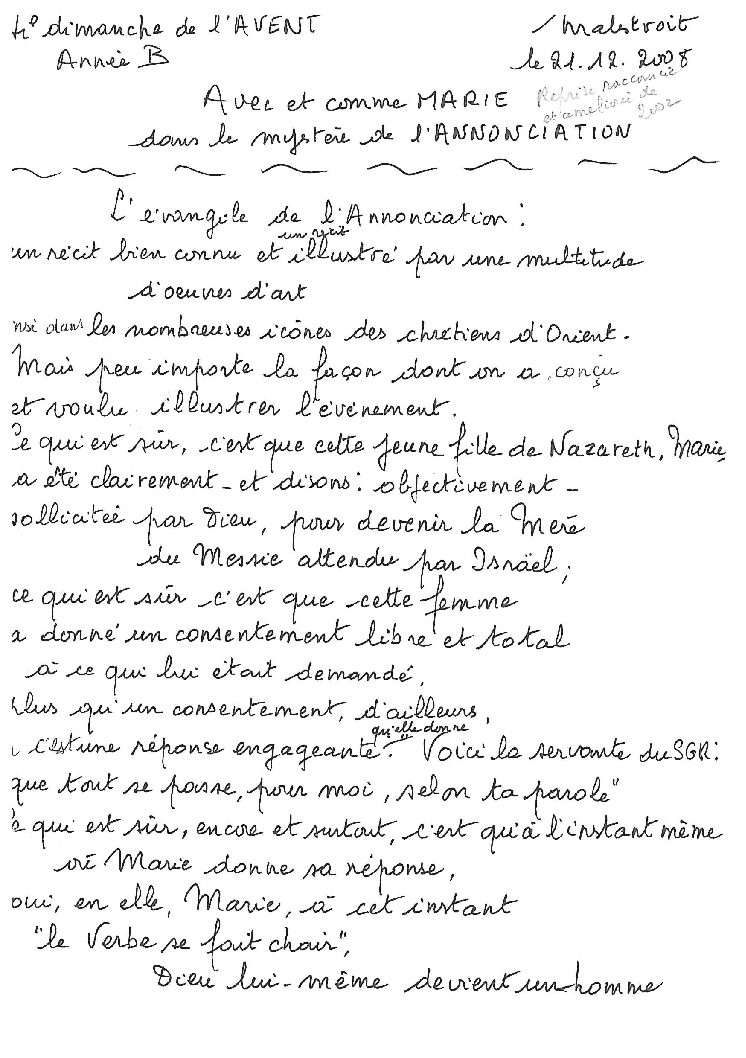 4e dimanche de l'AVENT
Année B
Malestroit
le 21.12.2008
Avec et comme MARIE
Reprise raccourcie
et améliorée de
2002
dans le mystère de l'ANNONCIATION
L'évangile de l'Annonciation :
un récit
un récit bien connu et illustré par une multitude
d'oeuvres d'art
nsi dans les nombreuses icônes des chrétiens d'Orient.
Mais peu importe la façon dont on a conçu
et voulu illustrer l'événement.
Ce qui est sûr, c'est que cette jeune fille de Nazareth, Marie,
a été clairement - et disons : objectivement -
sollicitée par Dieu, pour devenir la Mère
du Messie attendu par Israël ;
ce qui est sûr c'est que cette femme
a donné un consentement libre et total
à ce qui lui était demandé,
Plus qu'un consentement, d'ailleurs,
qu'elle donne
c'est une réponse engageante : "Voici la servante du SGR :
que tout se passe, pour moi, selon ta parole"
Ce qui est sûr, encore et surtout, c'est qu'à l'instant même
où Marie donne sa réponse,
oui, en elle, Marie, à cet instant
"le Verbe se fait chair",
Dieu lui-même devient un homme